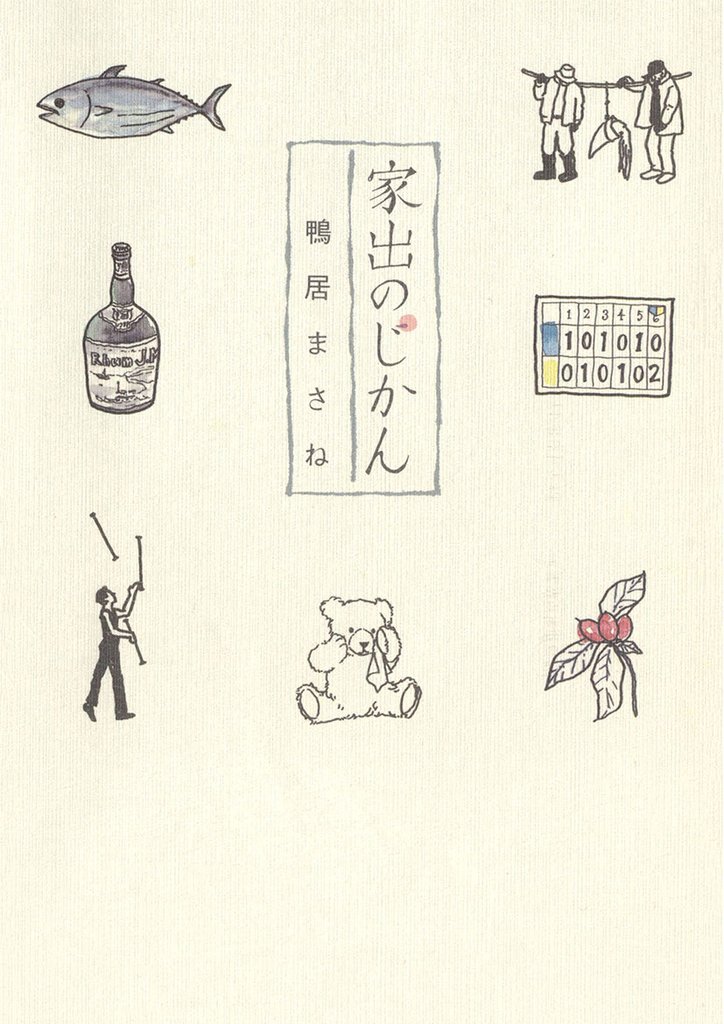 家出のじかん
鴨居まさね
Rhum J.M
1 2 3 4 5 6
1 0 1 0 1 0
0 1 0 1 0 2